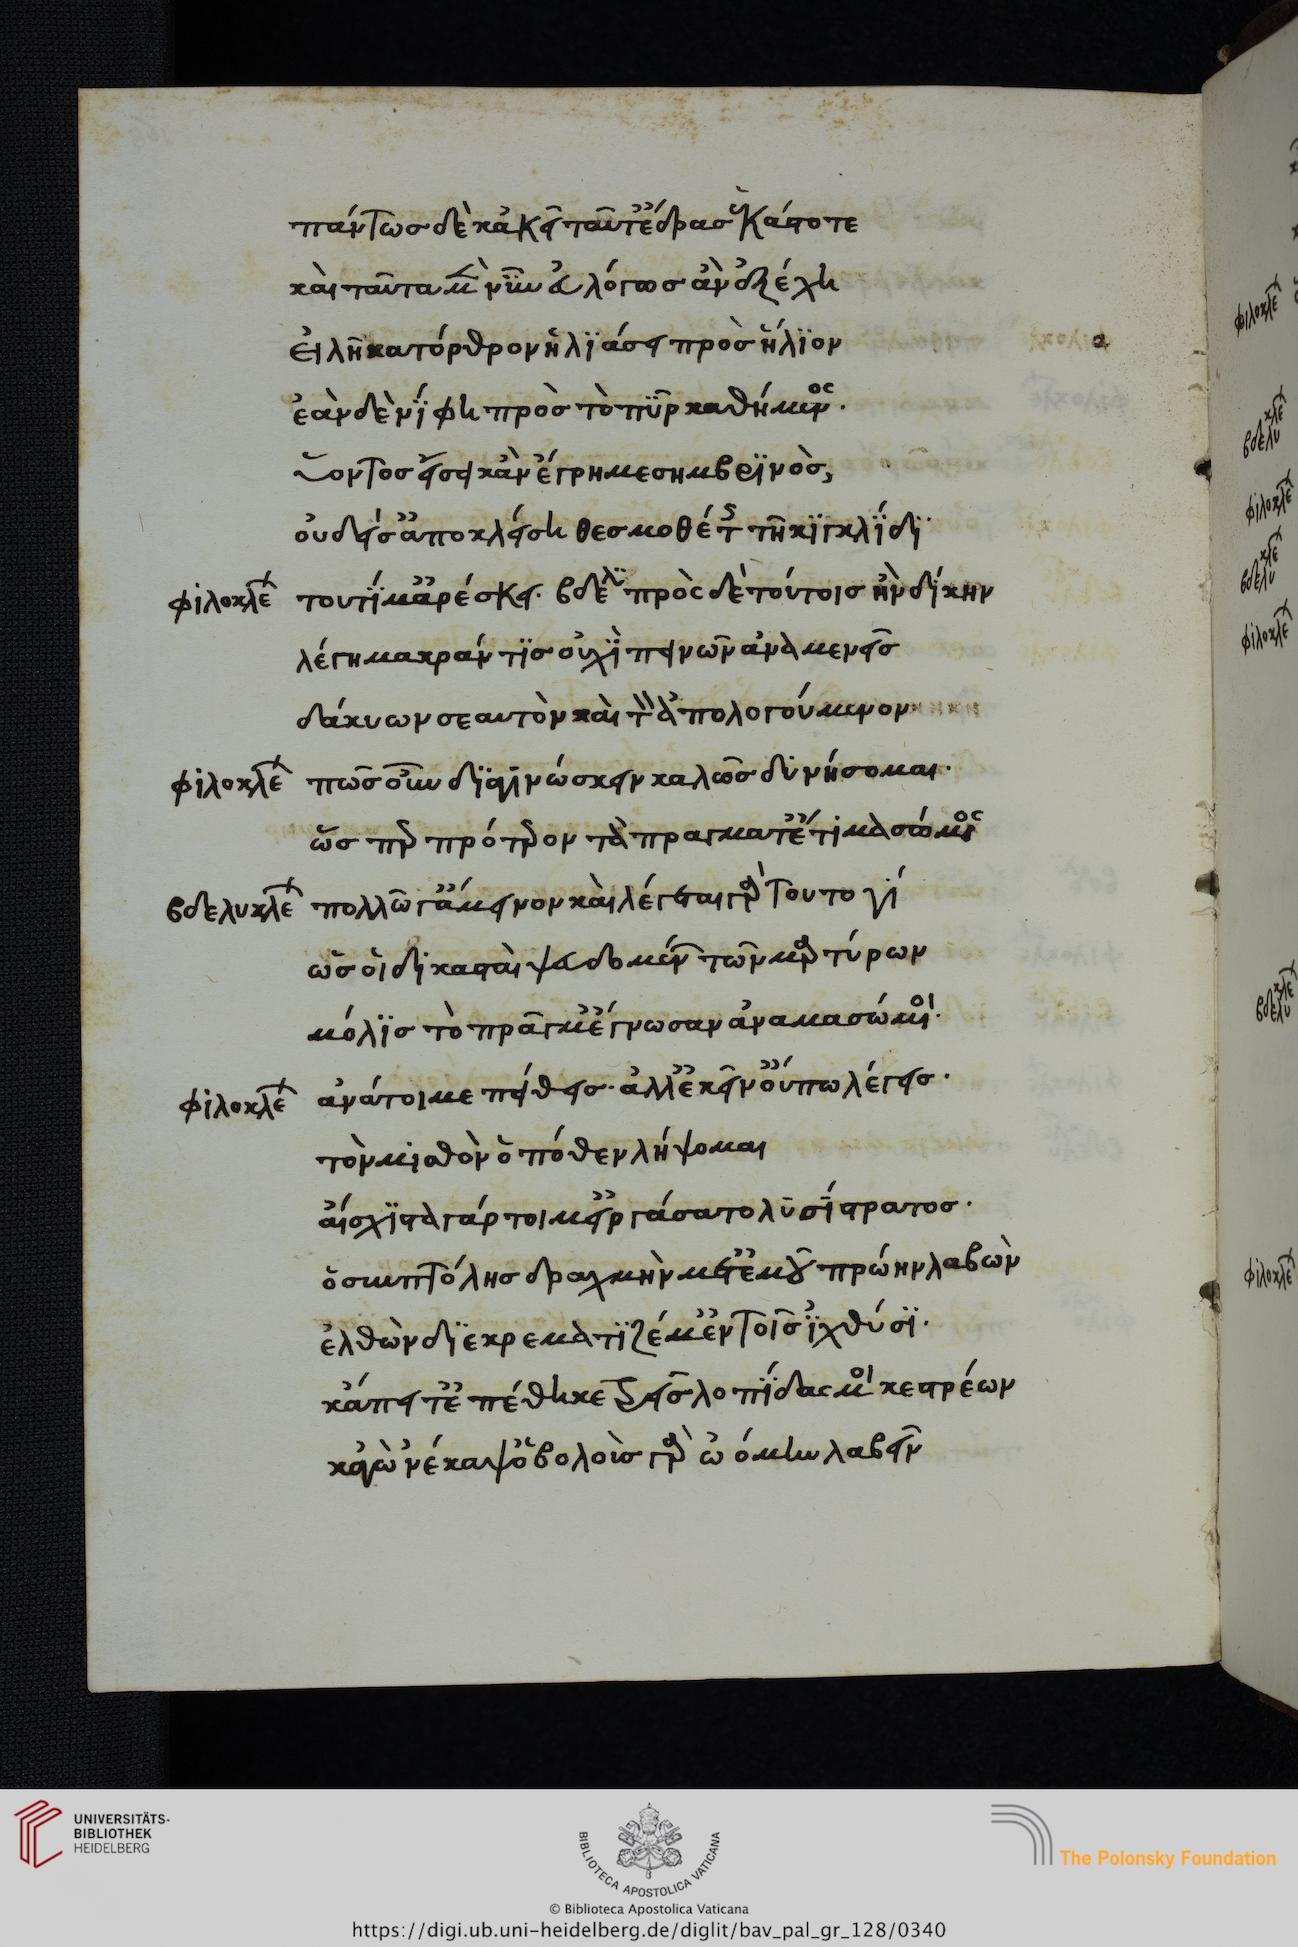 πάντως δὲ κἀκεῖ ταῦτ' ἔδρασ' ἂν κάποτε
καὶ ταῦτα μὲν νῦν εὐλόγως ἂν ἐξέχῃ
εἵλη κατόρθρον ἡλϊάσει πρὸς ἥλϊον
ἐὰν δὲ νίφῃ πρὸς τὸ πῦρ καθήμενος·
ὕοντος εἴσει κἂν ἔγρῃ μεσημβρϊνὸς,
οὐδείς σ' ἀποκλείσῃ θεσμοθέτης τῇ κϊγκλίδϊ·
φιλοκλέ τουτί μ' ἀρέσκει· βδελυ πρὸς δὲ τούτοις ἢν δίκην
λέγῃ μακράν τϊς οὐχὶ πεινῶν ἀναμενεῖς
δάκνων σεαυτὸν καὶ τὸν ἀπολογούμενον
φιλοκλέ πῶς οὖν δϊαγινώσκειν καλῶς δυνήσομαι·
ὥσπερ πρότερον τὰ πράγματ' ἔτι μασώμενος
βδελυκλέ πολλῷ γ' ἄμεινον καὶ λέγεται γὰρ τουτογί
ὡς οἱ δικασταὶ ψευδομένων τῶν μαρτύρων
μόλϊς τὸ πρᾶγμ' ἔγνωσαν ἀναμασώμενοι·
φιλοκλέ ἀνάτοι με πείθεις· ἀλλ' ἐκεῖν' οὔπω λέγεις·
τὸν μισθὸν ὁπόθεν λήψομαι
αἴσχϊστα γάρ τοί μ' εἰργάσατο λυσίστρατος·
ὁ σκωπτόλης δραχμὴν μετ' ἐμοῦ πρώην λαβὼν
ἐλθὼν δϊεκερματϊζέ μ' ἐν τοῖς ἰχθύσϊ·
κἄπειτ' ἐπέθηκε τρεῖς λοπίδας μοι κεστρέων
κἀγὼ νέκαψ' ὀβολοὺς γὰρ ᾠόμην λαβεῖν
φιλοκλέ
βδελυκλέ
φιλοκλέ
βδελυκλέ
φιλοκλέ
βδελυκλέ
φιλοκλέ
UNIVERSITÄTS-
BIBLIOTHEK
HEIDELBERG
BIBLIOTECA APOSTOLICA VATICANA
The Polonsky Foundation
© Biblioteca Apostolica Vaticana
https://digi.ub.uni-heidelberg.de/diglit/bav_pal_gr_128/0340